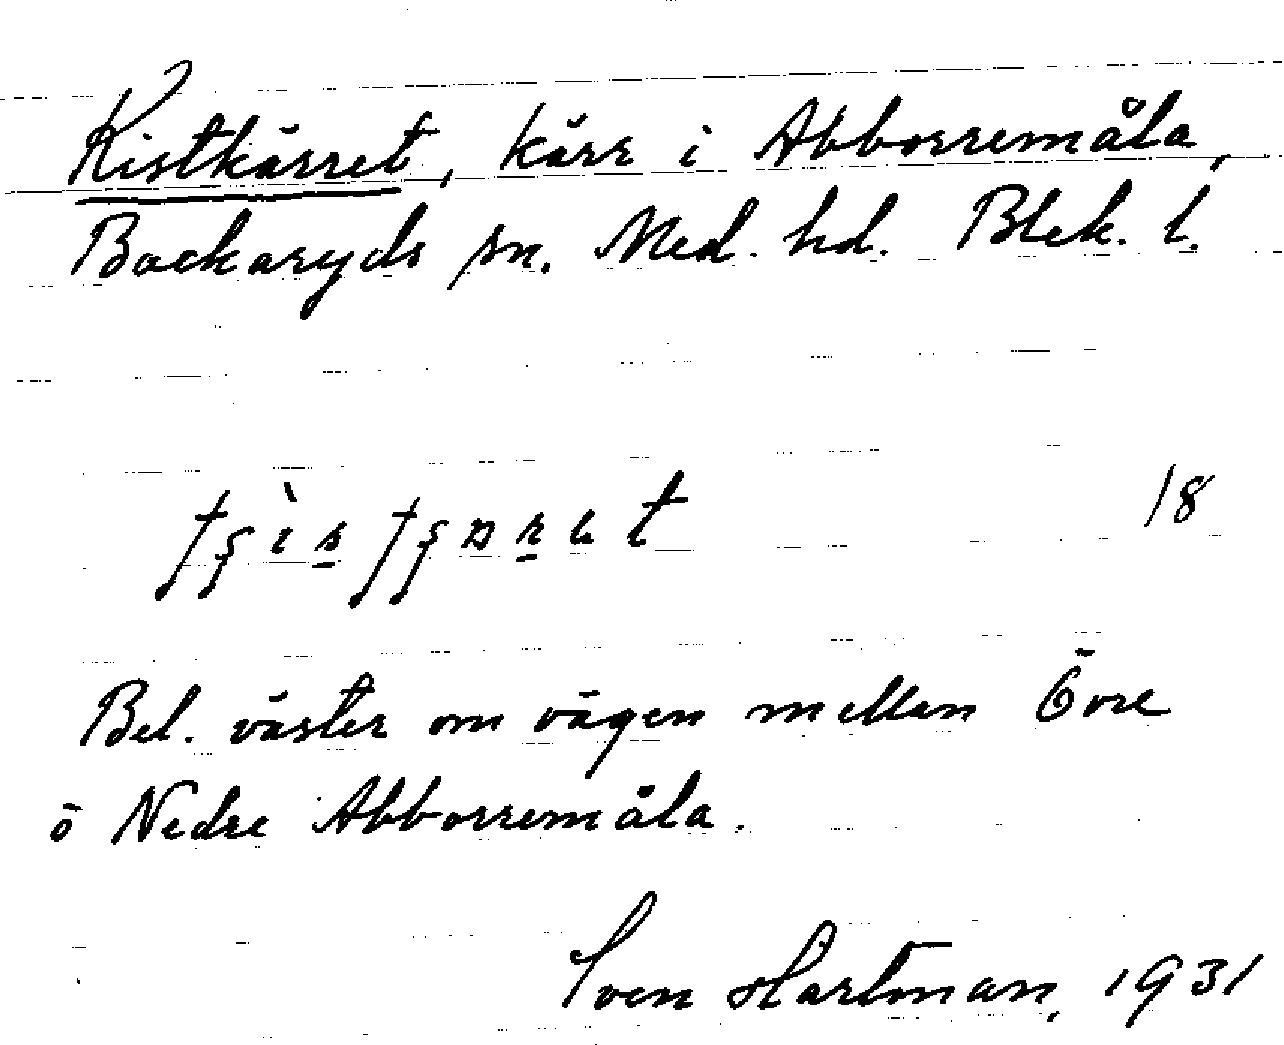 Kistkärret, kärr i Abborremåla,
Backaryds sn. Med. hd. Blek. l.
18
Bel. väster om vägen mellan Övre
o Nedre Abborremåla.
Sven Hartman, 1931